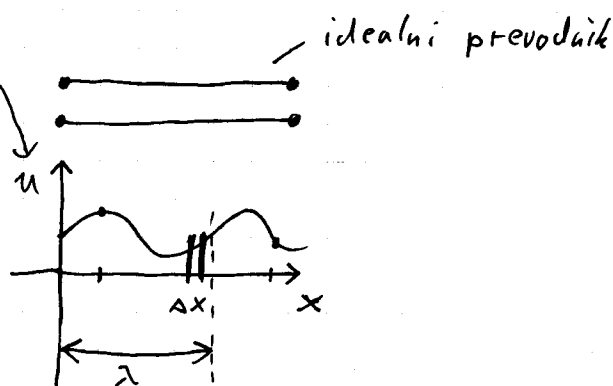 idealni prevodnik
u
Δx
x
λ